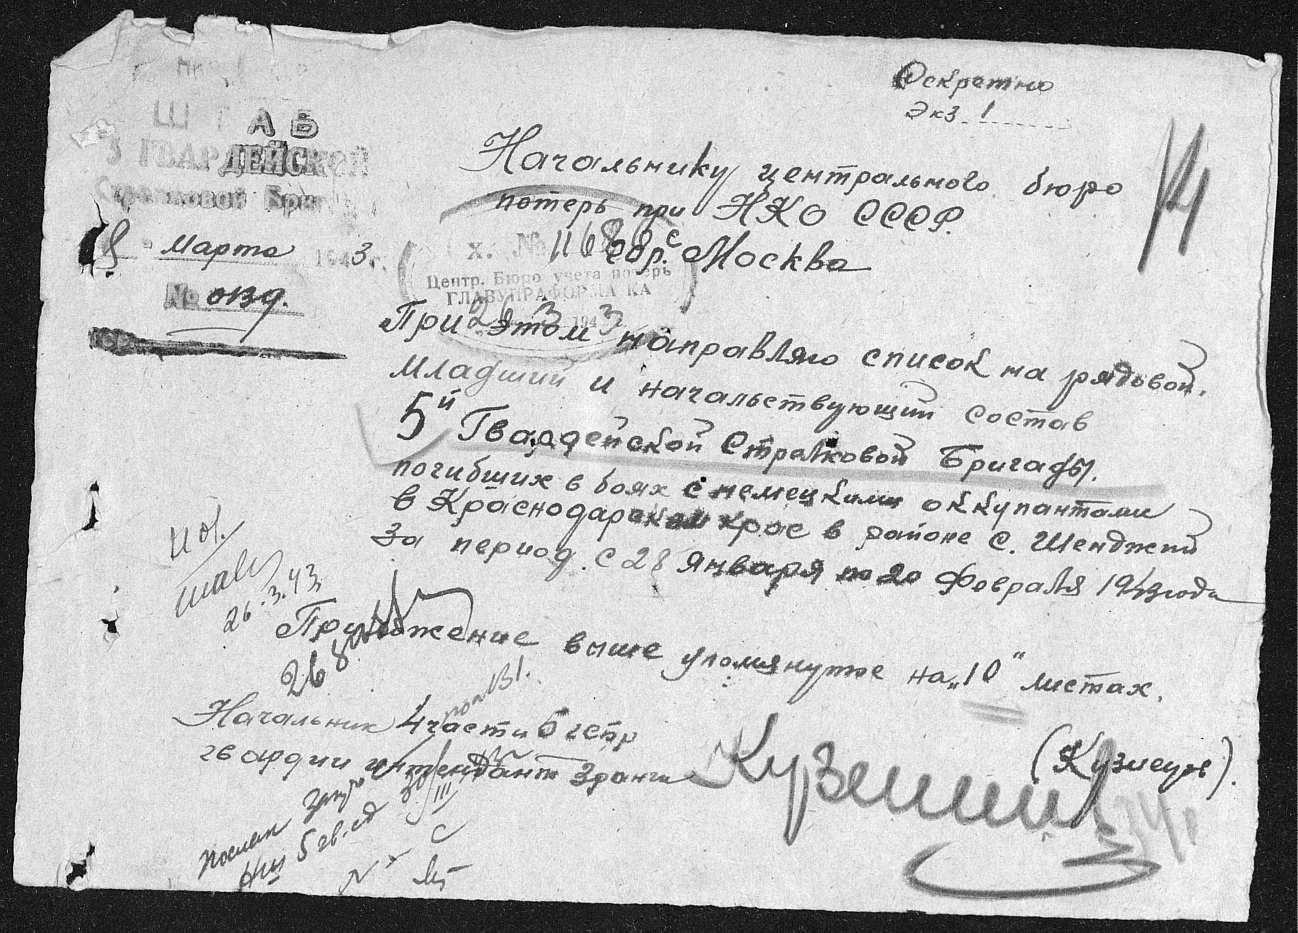 Секретно
Экз. 1
14
ШТАБ
5 ГВАРДЕЙСКОЙ
Стрелковой Бриг
8 " Марта 1943 г.
№ 0139.
Начальнику центрального бюро
потерь при НКО СССР.
гор. Москва
х. № 11680с
Центр. Бюро учета потерь
ГЛАВУПРАФОРМА КА
26 3 1943
При этом направляю список на рядовой,
младший и начальствующий состав
5й Гвардейской Стрелковой Бригады.
погибших в боях с немецкими оккупантами
в Краснодарском крае в районе с. Шенджий
за период с 28 января по 20 февраля 1943 года
26.3.43
Приложение выше упомянутое на "10" листах.
Начальник 4 части 5 гстр
гвардии интендант 3 ранга
(Кузнецов).
5 гв. сд
30/III